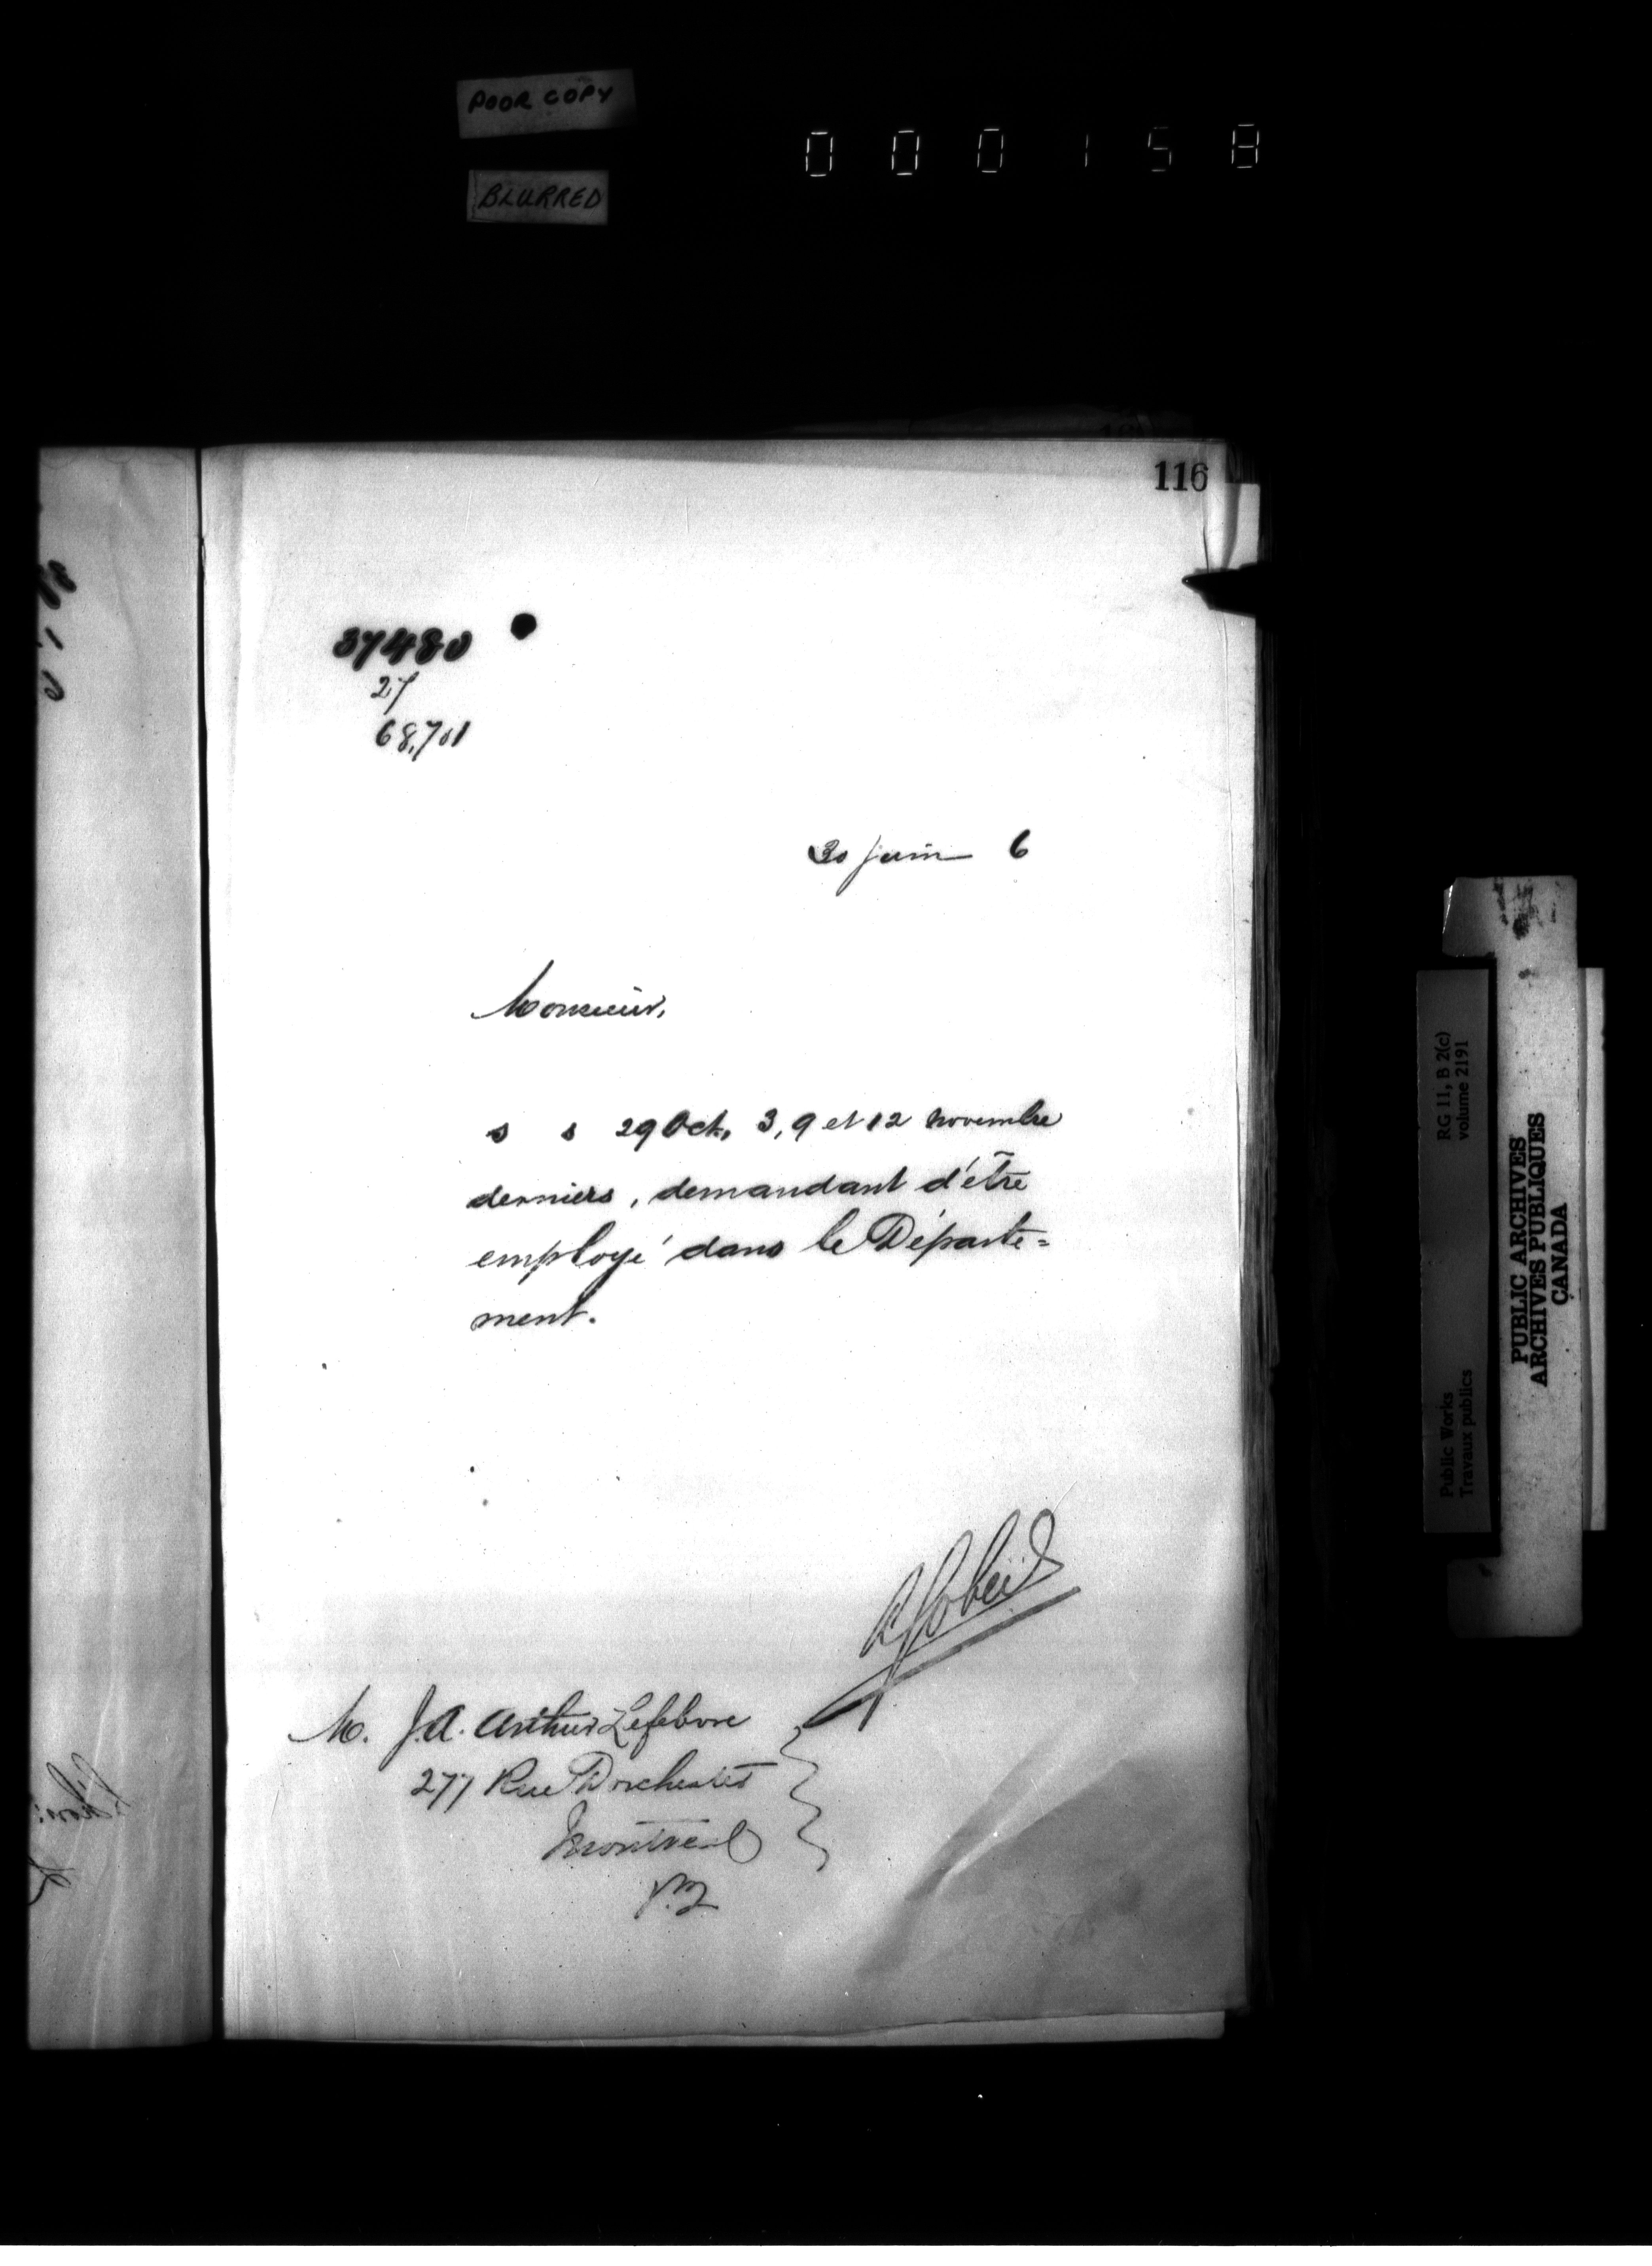 POOR COPY
000158
BLURRED
116
37480
27
68,701
30 juin 6
Monsieur,
s s 29 Oct, 3, 9 et 12 novembre
derniers, demandant d'être
employé dans le Départe=
ment.
AGobeil
M. J.A. Arthur Lefebvre
277 Rue Dorchester
Montreal
P.Q
RG 11, B 2(c)
volume 2191
Public Works
Travaux publics
PUBLIC ARCHIVES
ARCHIVES PUBLIQUES
CANADA